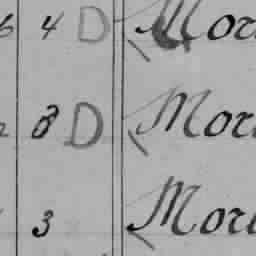 6 4 D Mor
8 D Mor
3 Mor